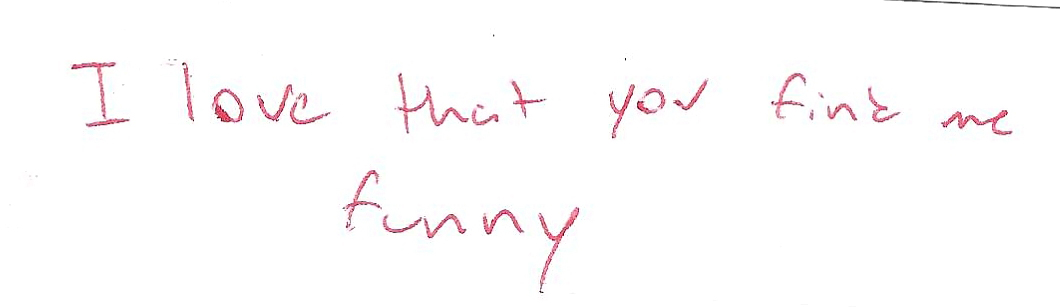 I love that you find me
funny